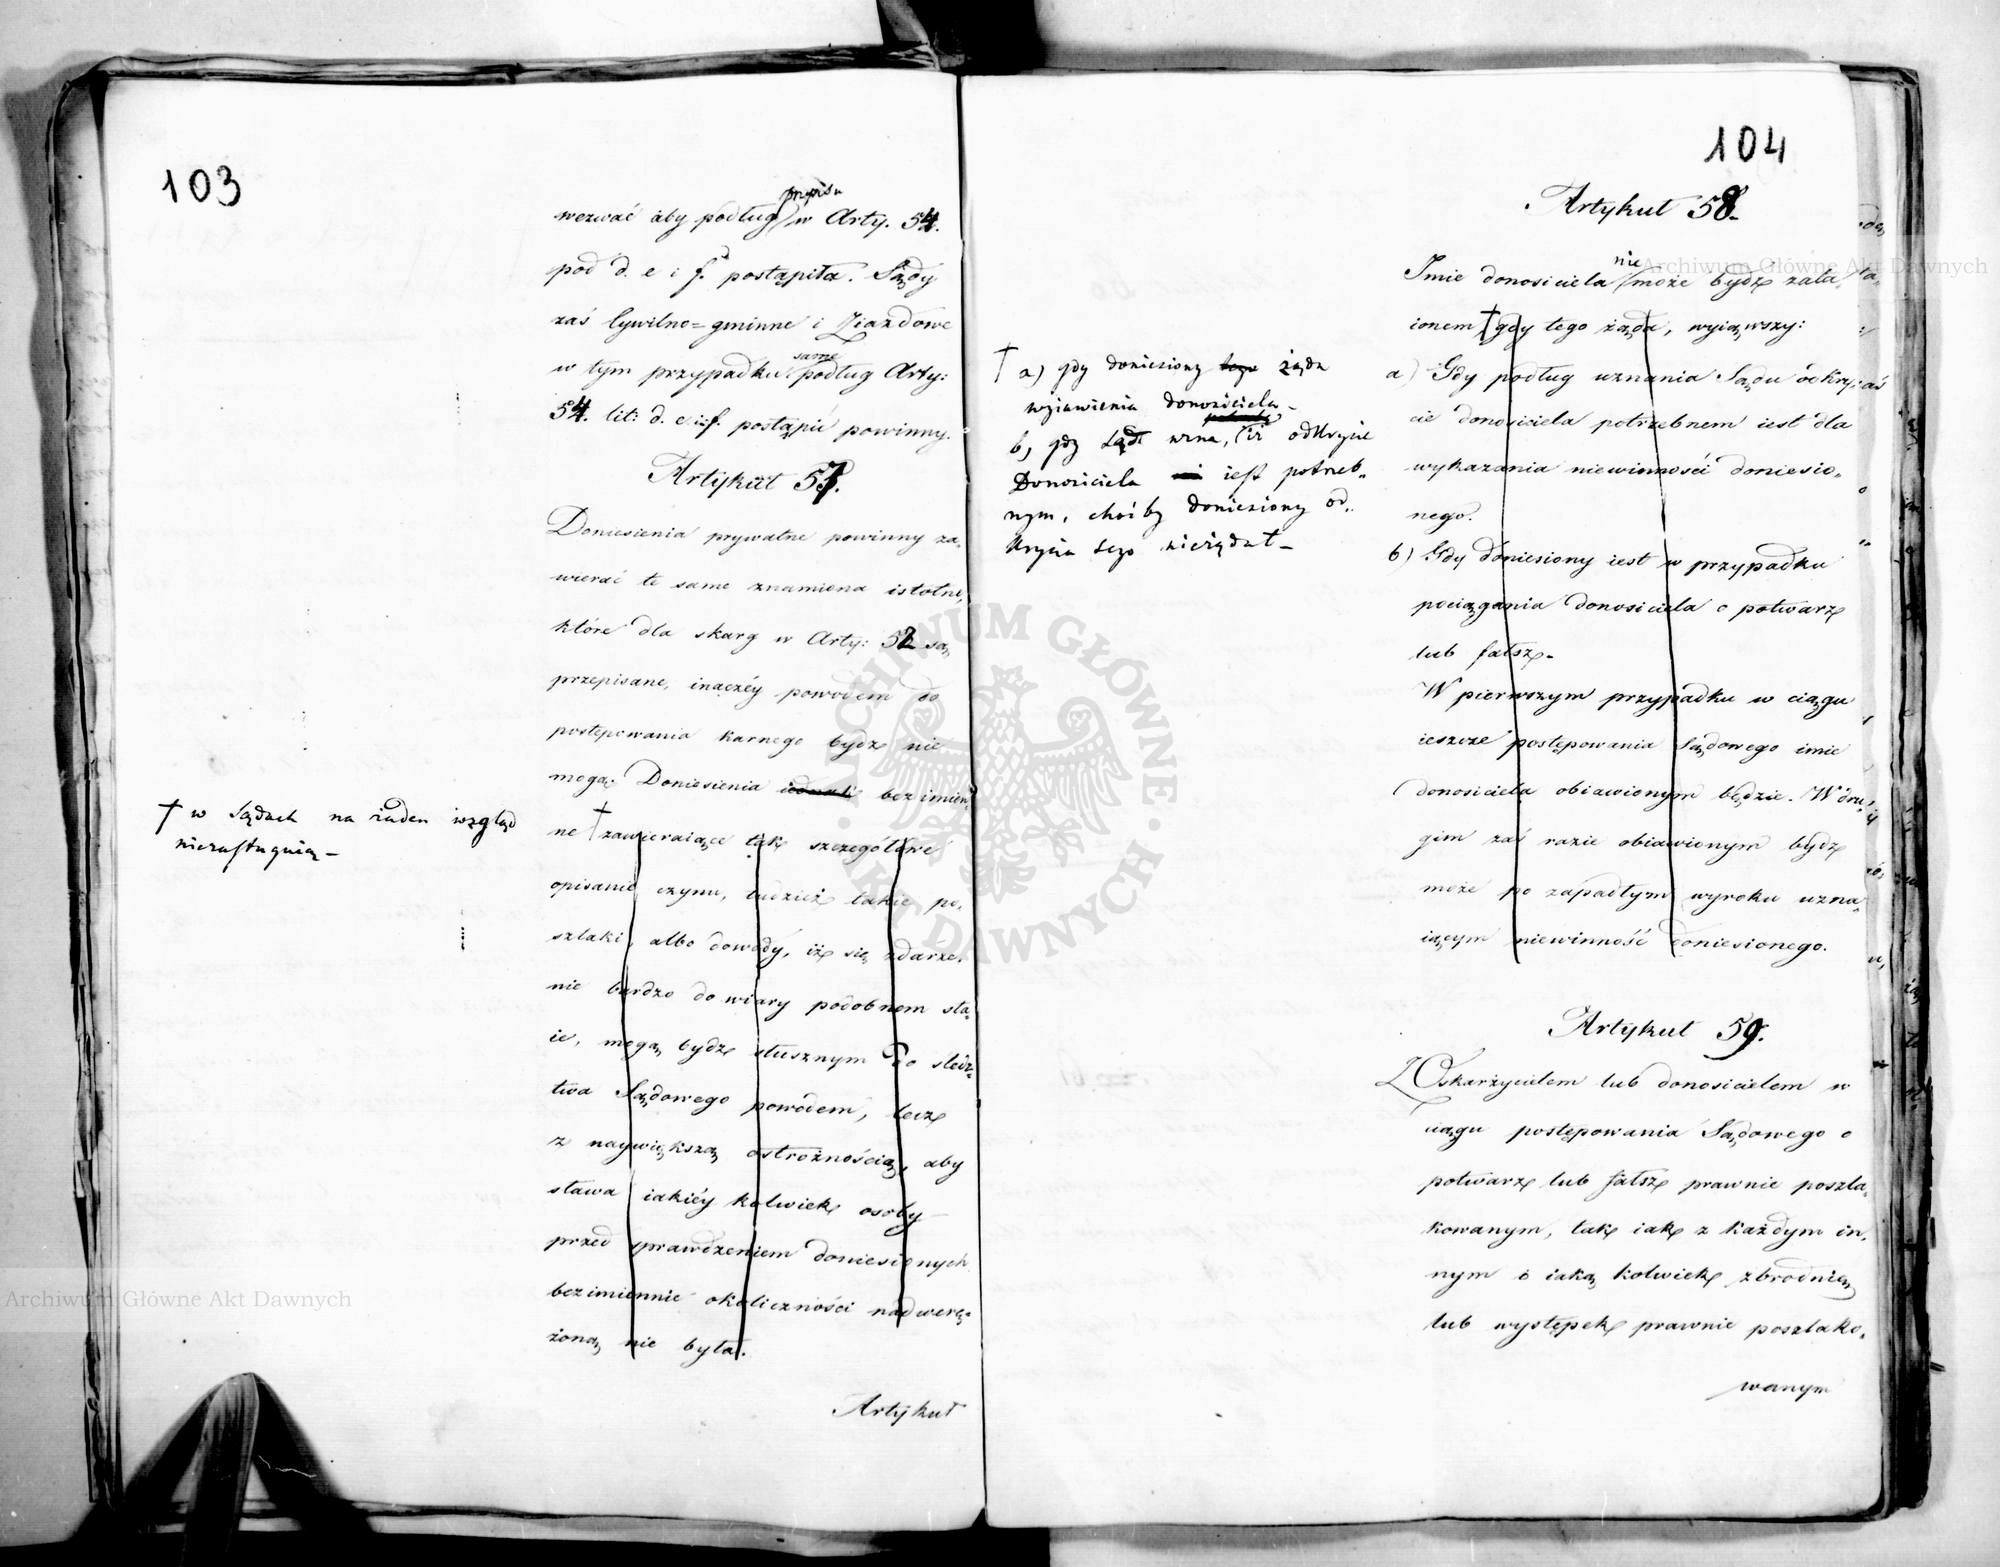 103
wezwać aby podług przepisu w Arty. 54.
pod d. e i f. postąpiła. Sądy
zaś Cywilno=gminne i Ziazdowe
w tym przypadku same podług Arty:
54. lit: d. e i f. postąpić powinny.
Artykuł 57.
Doniesienia prywatne powinny za-
wierać te same znamiona istotne,
które dla skarg w Arty: 52 są
przepisane, inaczéy powodem do
postępowania karnego bydź nie
mogą. Doniesienia iednak bezimien-
ne † zawieraiące tak szczegółowe
opisanie czynu, tudzież takie po-
szlaki, albo dowody, iż się zdarze-
nie bardzo do wiary podobnem sta-
ie, mogą bydź słusznym do śledz-
twa Sądowego powodem, lecz
z naywiększą ostrożnością, aby
sława iakiéy kolwiek osoby
przed sprawdzeniem doniesionych
bezimiennie okoliczności nadwerę-
żoną nie była.
Artykuł
† w Sądach na żaden wzgląd
niezasługuią -
104
Artykuł 58.
Imie donosiciela nie może bydź zata-
ionem † gdy tego żąda, wyiąwszy:
a) Gdy podług uznania Sądu odkry-
cie donosiciela potrzebnem iest dla
wykazania niewinności doniesio-
nego.
b) Gdy doniesiony iest w przypadku
pociągania donosiciela o potwarz
lub fałsz.
W pierwszym przypadku w ciągu
ieszcze postępowania Sądowego imie
donosiciela obiawionym będzie. W dru-
gim zaś razie obiawionym bydź
może po zapadłym wyroku uzna-
iącym niewinność doniesionego.
Artykuł 59.
Z Oskarżycielem lub donosicielem w
ciągu postępowania Sądowego o
potwarz lub fałsz prawnie poszla-
kowanym, tak iak z każdym in-
nym o iaką kolwiek zbrodnią
lub występek prawnie poszlako-
wanym
† a) gdy doniesiony tego żąda
wyiawienia donosiciela -
b) gdy Sąd uzna, iż odkrycie
Donosiciela iest potrzeb-
nym, choćby doniesiony od-
krycia tego nieżądał -
Archiwum Główne Akt Dawnych
Archiwum Główne Akt Dawnych
ARCHIWUM GŁÓWNE · AKT DAWNYCH ·